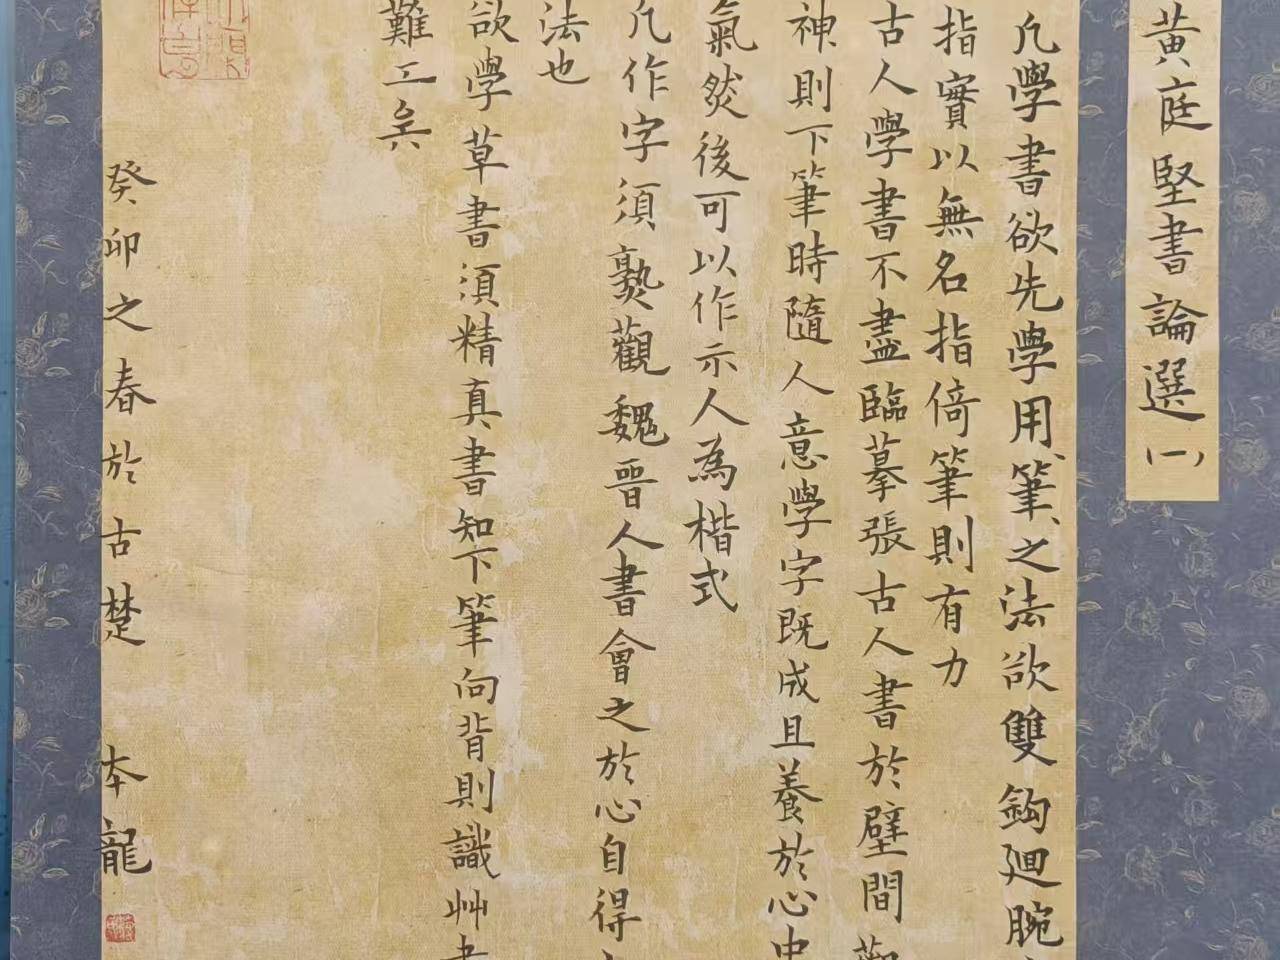 黃庭堅書論選(一)
凡學書欲先學用筆之法欲雙鈎廻腕
指實以無名指倚筆則有力
古人學書不盡臨摹張古人書於壁間觀
神則下筆時隨人意學字既成且養於心中
氣然後可以作示人為楷式
凡作字須熟觀魏晉人書會之於心自得
法也
欲學草書須精真書知下筆向背則識艸書
難工矣
癸卯之春於古楚 本龍